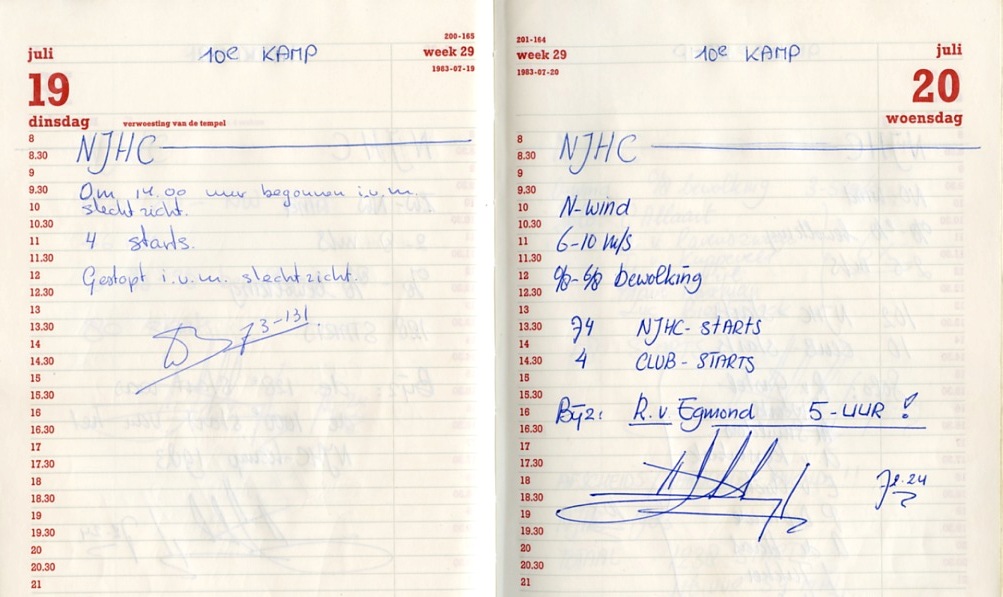 200-165
juli
10e KAMP
week 29
1983-07-19
19
dinsdag
verwoesting van de tempel
8
NJHC
8.30
9
9.30
Om 14.00 uur begonnen i.v.m.
10
slecht zicht.
10.30
11
4 starts.
11.30
12
Gestopt i.v.m. slecht zicht.
12.30
13
13.30
73-131
14
14.30
15
15.30
16
16.30
17
17.30
18
18.30
19
19.30
20
20.30
21
201-164
week 29
10e KAMP
juli
1983-07-20
20
woensdag
8
NJHC
8.30
9
9.30
10
N-wind
10.30
11
6-10 m/s
11.30
12
bewolking
12.30
13
13.30
74 NJHC-STARTS
14
14.30
4 CLUB-STARTS
15
15.30
16
Bijz: R. v. Egmond 5-UUR!
16.30
17
17.30
18
18.30
19
19.30
20
20.30
21